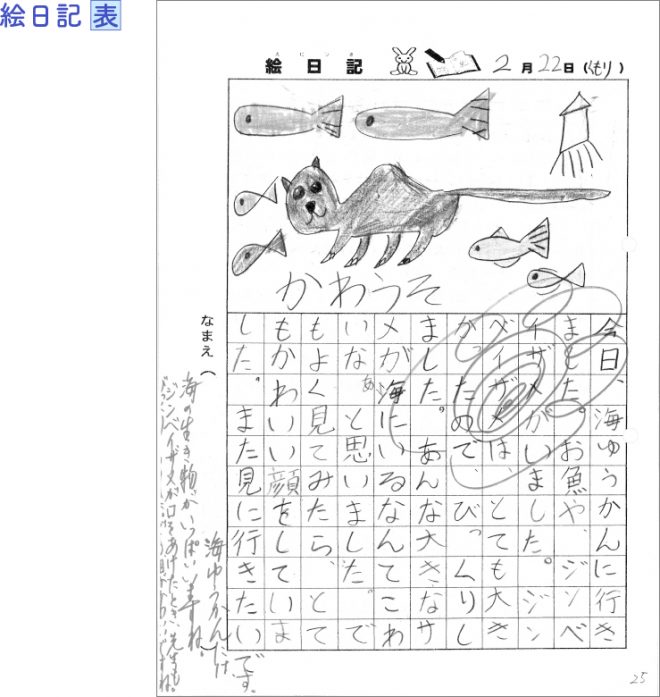 絵日記 表
えにっき
絵日記 2月22日(くもり)
かわうそ
今日、海ゆうかんに行き
ました。お魚や、ジンベ
イザメがいました。ジン
ベイザメは、とても大き
かったので、びっくりし
ました。あんな大きなサ
メが海にいるなんてこわ
いなあと思いました。で
もよく見てみたら、とて
もかわいい顔をしていま
した。また見に行きたい
です。
なまえ( )
海ゆうかんには、
海の生き物がいっぱいいますね。
ジンベイザメが口をあけたとき、先生も
25